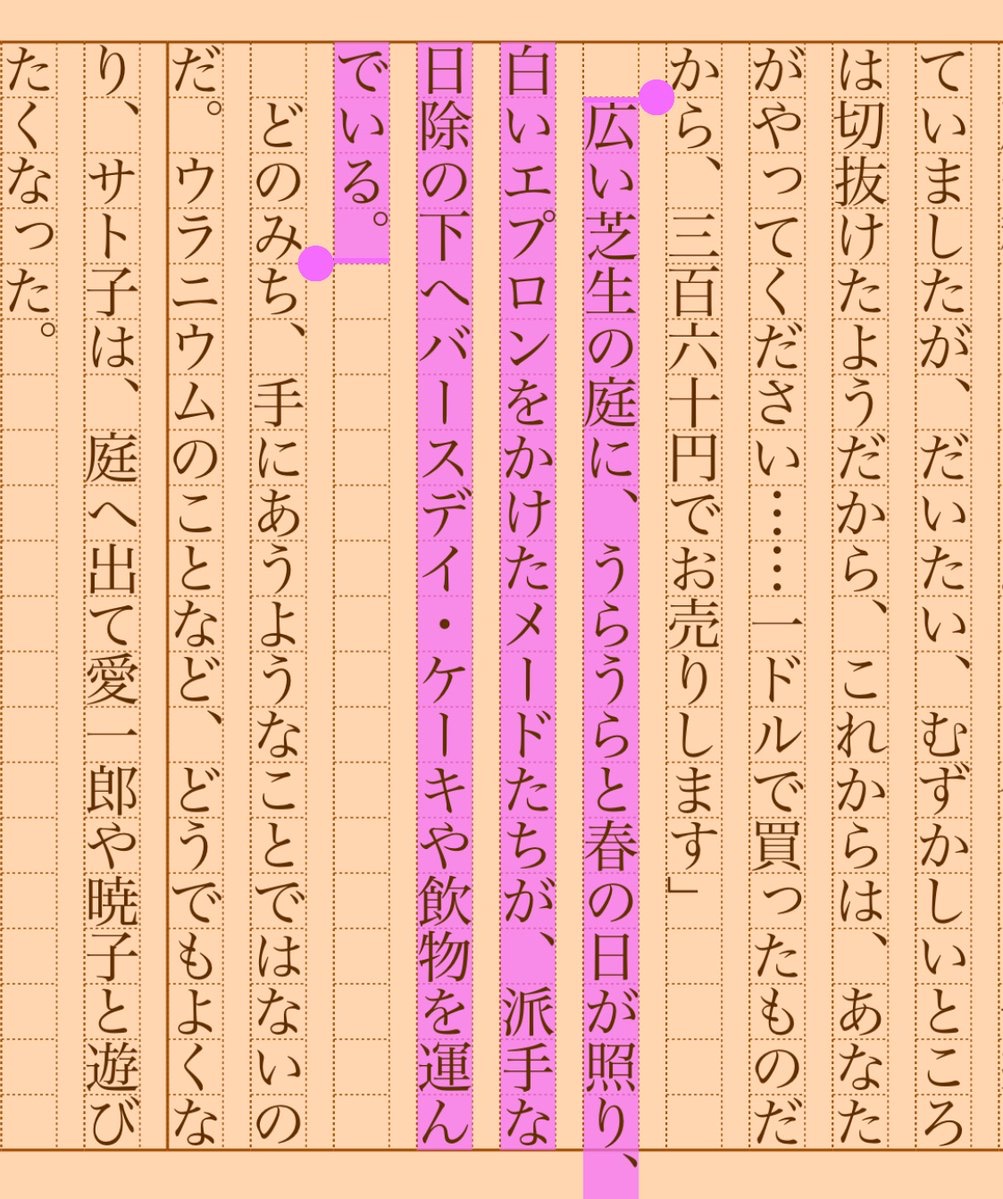 ていましたが、だいたい、むずかしいところ
は切抜けたようだから、これからは、あなた
がやってください……一ドルで買ったものだ
から、三百六十円でお売りします」
　広い芝生の庭に、うらうらと春の日が照り、
白いエプロンをかけたメードたちが、派手な
日除の下へバースデイ・ケーキや飲物を運ん
でいる。
　どのみち、手にあうようなことではないの
だ。ウラニウムのことなど、どうでもよくな
り、サト子は、庭へ出て愛一郎や暁子と遊び
たくなった。